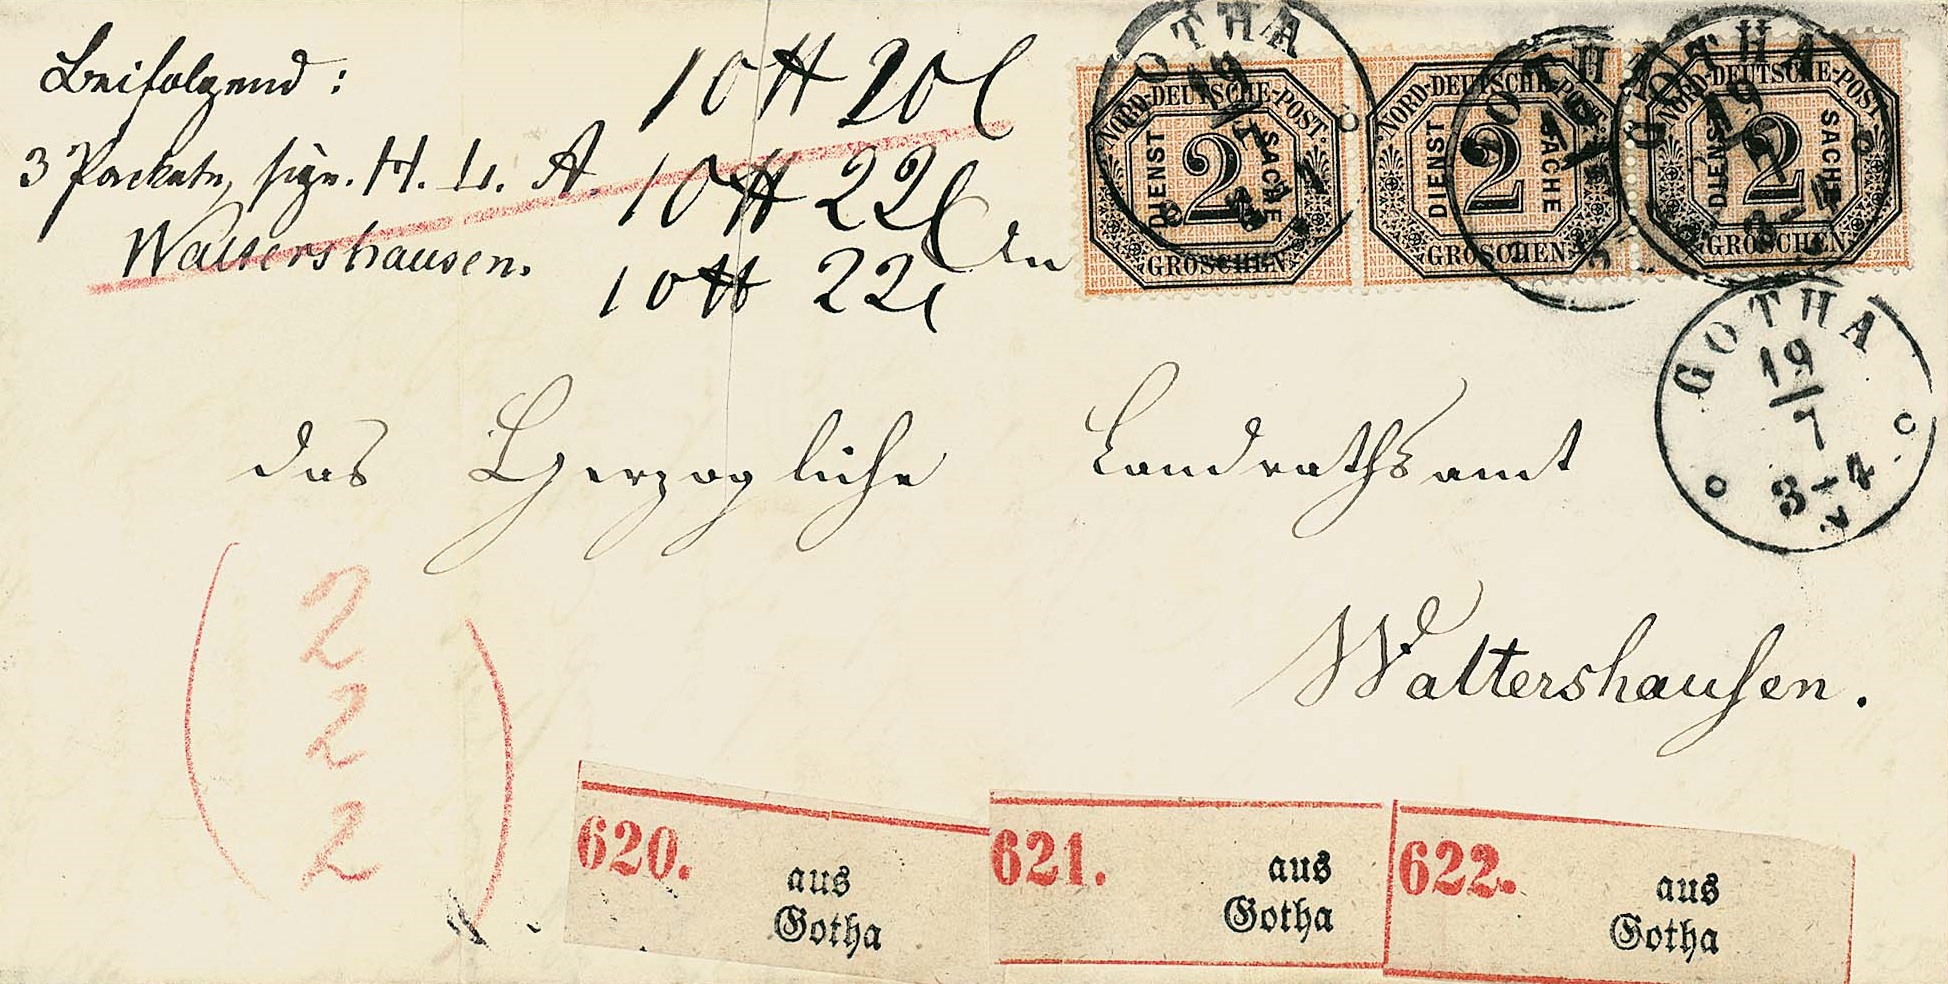 Beifolgend:
3 Packete, sign. H. L. A.
Waltershausen.
10 ℔ 20
10 ℔ 22
10 ℔ 22
An
das Herzogliche Landrathsamt
Waltershausen.
NORD-DEUTSCHE-POST
DIENST 2 SACHE
GROSCHEN
NORD-DEUTSCHE-POST
DIENST 2 SACHE
GROSCHEN
NORD-DEUTSCHE-POST
DIENST 2 SACHE
GROSCHEN
GOTHA
GOTHA
GOTHA
19
3-4
GOTHA
19
7
3-4
2
2
2
620.
aus
Gotha
621.
aus
Gotha
622.
aus
Gotha